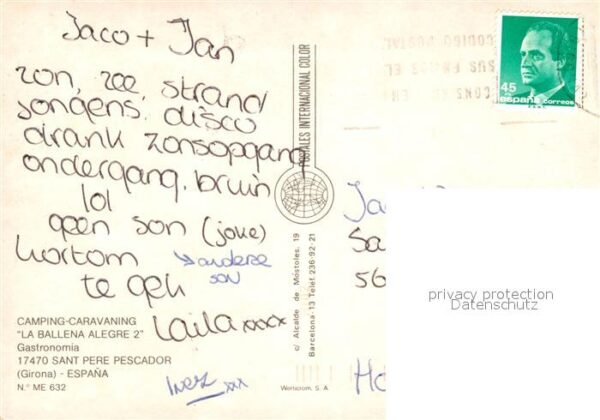 Jaco + Jan
zon, zee, strand
jongens, disco
drank zonsopgang
ondergang, bruin
lol
geen son (joke)
kortom → andere son
te gek
Laila xxxx
Inez xxx
CAMPING-CARAVANING
"LA BALLENA ALEGRE 2"
Gastronomia
17470 SANT PERE PESCADOR
(Girona) - ESPAÑA
N.º ME 632
POSTALES INTERNACIONAL COLOR
c/ Alcalde de Móstoles, 19
Barcelona-13 Telef. 236-92-21
CODIGO POSTAL
SUS ENVIOS EL
CONSIGNE EN
45
España correos
Ja
Sa
56
Ho
privacy protection
Datenschutz